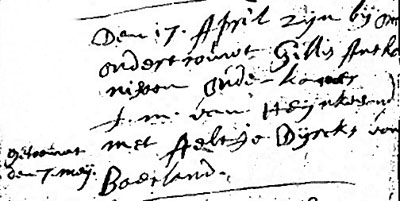 Den 17. April zijn bij ons
ondertrouwt Gillis Antho
nissen onder
j. m. van Heijnkensand
met Aeltje Dijrcks van
Baerland.
getrouwt
den 7. meij.